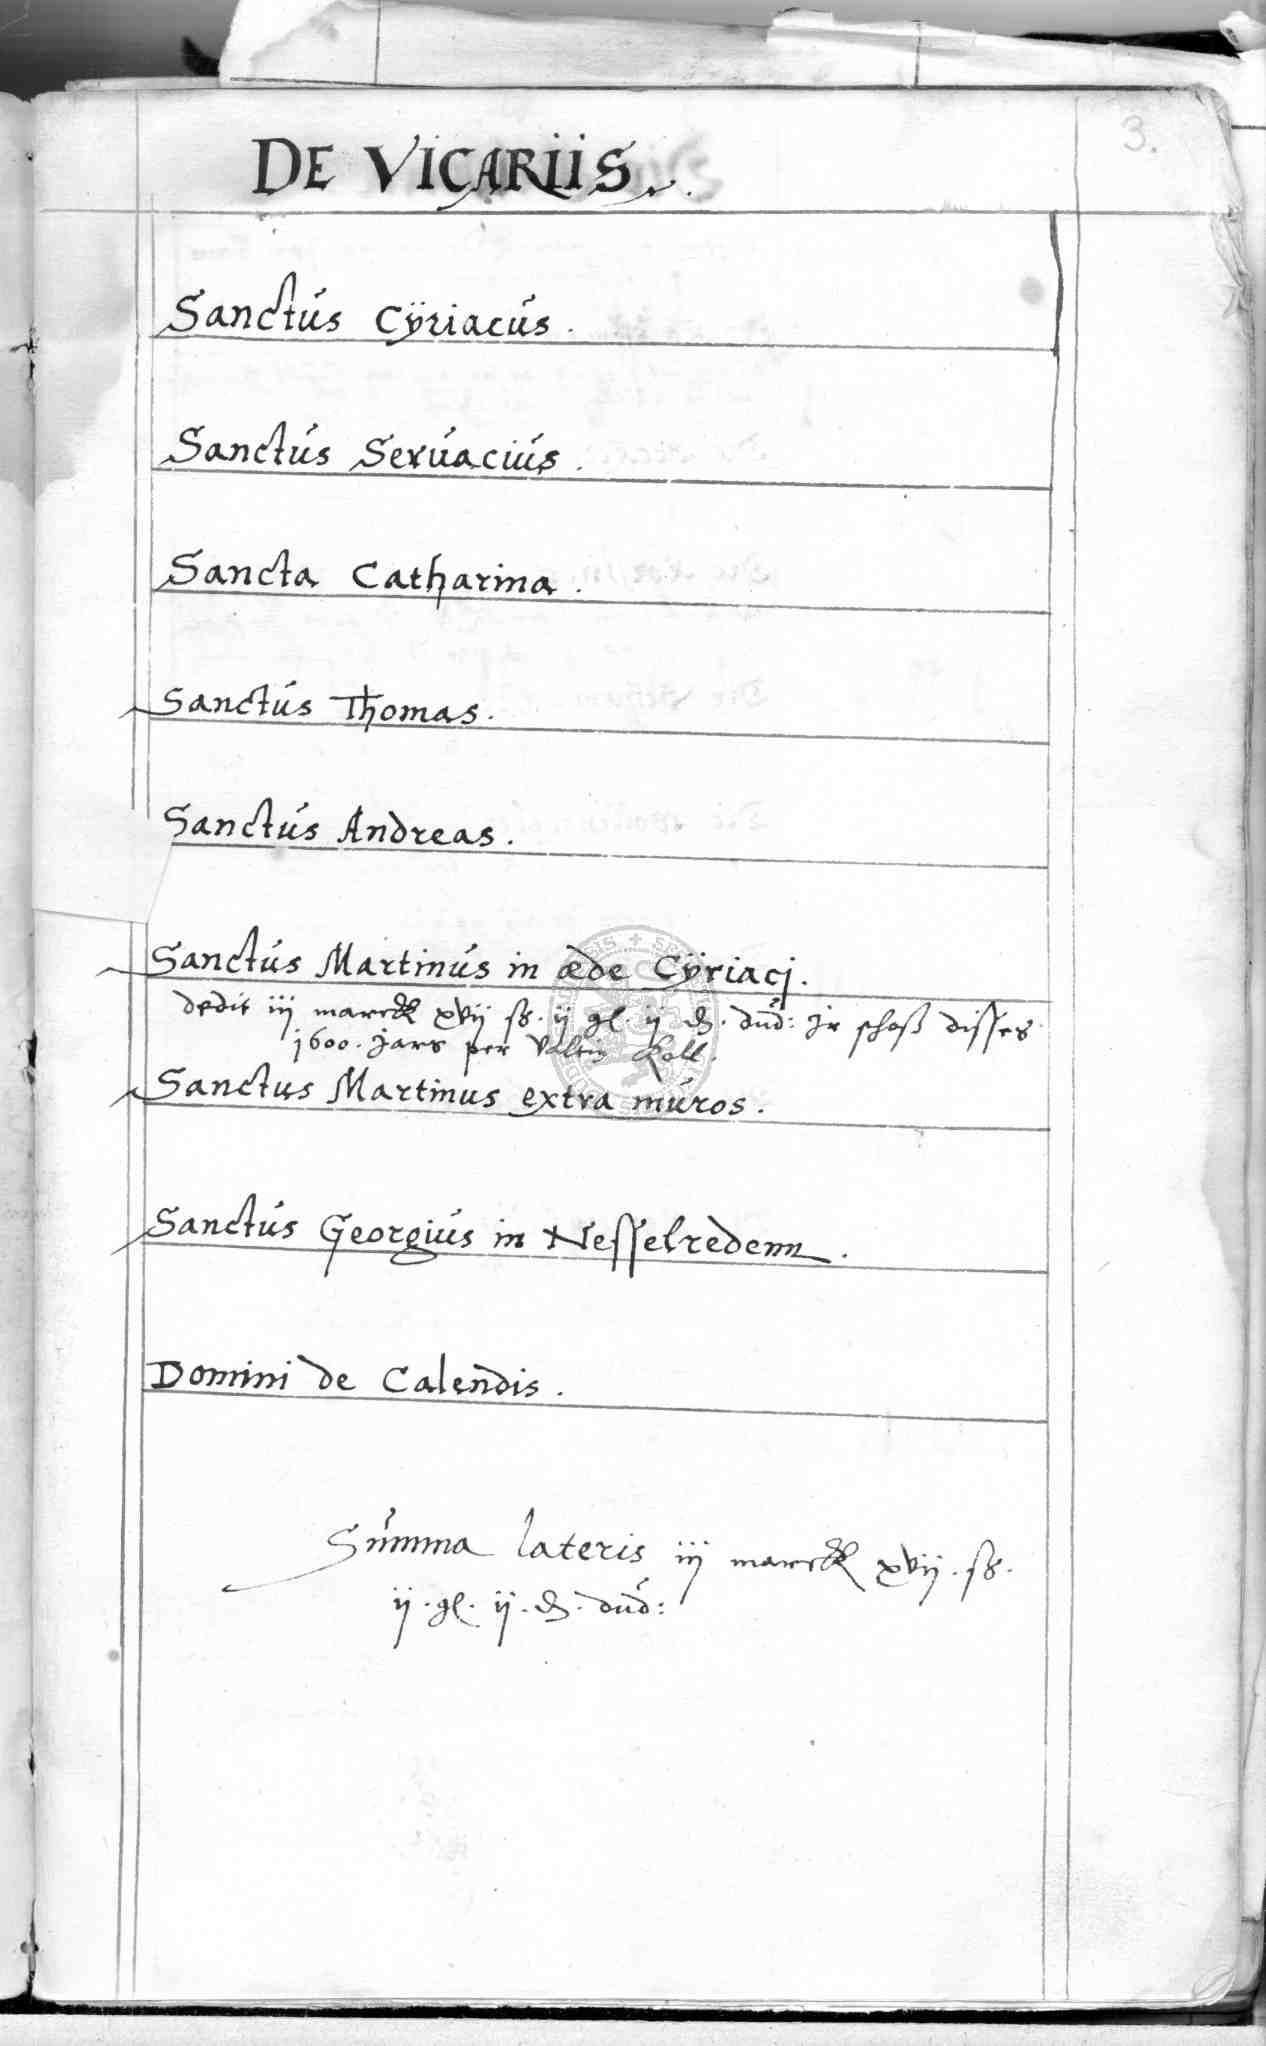 3.
DE VICARIIS.
Sanctús Cÿriacús.
Sanctús Serúaciús.
Sancta Catharina.
Sanctús Thomas.
Sanctús Andreas.
Sanctús Martinús in æde Cÿriacj.
dedit iij marck xvij ß. ij gl. ij ₰. dúd: Jr schoß disses
1600. Jars per Valtin
Sanctus Martinus extra múros.
Sanctús Georgiús in Nesselredenn.
Domini de Calendis.
Súmma lateris iij marck xvij. ß.
ij. gl. ij. ₰. dúd: